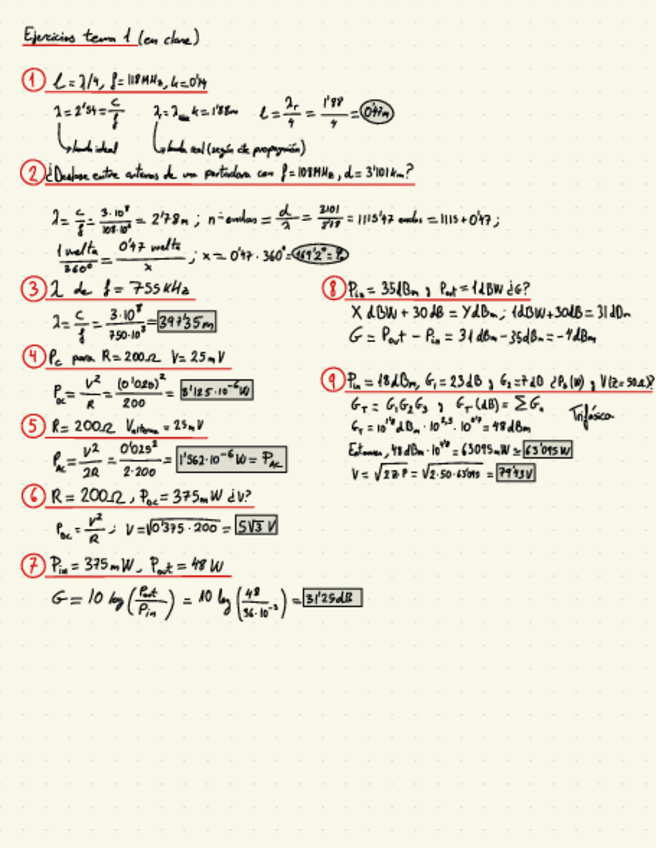 Ejercicios tema 1 (en clase)
① l = λ/4, f = 118MHz, k = 0'74
λ = 2'54 = c/f   λr = λ k = 1'88m   l = λr/4 = 1'88/4 = 0'47m
onda ideal   onda real (según cte propagación)
② ¿Desfase entre antenas de una portadora con f = 108MHz, d = 3'101km?
λ = c/f = 3·10⁸/108·10⁶ = 2'78m ; n = ondas = d/λ = 3101/2'78 = 1115'47 ondas = 1115 + 0'47 ;
1 vuelta/360° = 0'47 vuelta/x ; x = 0'47 · 360° = 169'2°
③ λ de f = 755KHz
λ = c/f = 3·10⁸/750·10³ = 397'35m
④ Pc para R = 200Ω V = 25mV
Pdc = V²/R = (0'025)²/200 = 3'125·10⁻⁶W
⑤ R = 200Ω = 25mV
Pac = V²/2R = 0'025²/2·200 = 1'562·10⁻⁶W = PAC
⑥ R = 200Ω, Pdc = 375mW ¿V?
Pdc = V²/R ; V = √0'375·200 = 5√3 V
⑦ Pin = 375mW, Pout = 48W
G = 10 log (Pout/Pin) = 10 log (48/36·10⁻³) = 31'25dB
⑧ Pin = 35dBm y Pout = 1dBW ¿G?
X dBW + 30dB = Y dBm ; 1dBW + 30dB = 31dBm
G = Pout - Pin = 31dBm - 35dBm = -4dBm
⑨ Pin = 18dBm, G₁ = 23dB y G₂ = 7dB ¿Po(W) y V(Z=50Ω)?
GT = G₁G₂G₃ y GT(dB) = ΣG   Trifásica
dBm · 10²'³ · = 48dBm
Entonces, 48dBm · = 63095mW ≃ 63'095W
V = √2Z·P = √2·50·63'095 = 79'43V